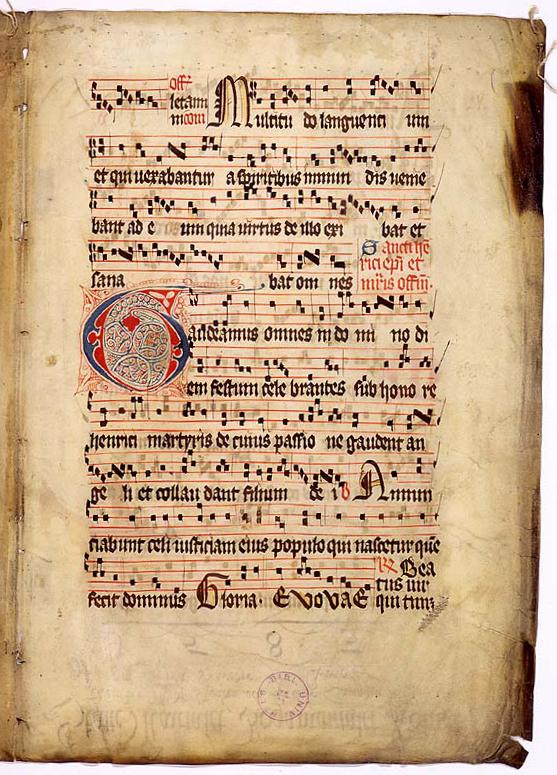 off
letam
mcom Multitu do languenti um
et qui uexabantur a spiritibus inmun dis uenie
bant ad e um quia uirtus de illo exi bat et
sana bat om nes
Sancti he
rici epi et
mris offm.
Gaudeamus omnes in do mi no di
em festum cele brantes sub hono re
henrici martyris de cuius passio ne gaudent an
ge li et collau dant filium de i
Annun
ciabunt celi iusticiam eius populo qui nascetur que
fecit dominus Gloria. EvovaE
Bea
tus uir
qui tim